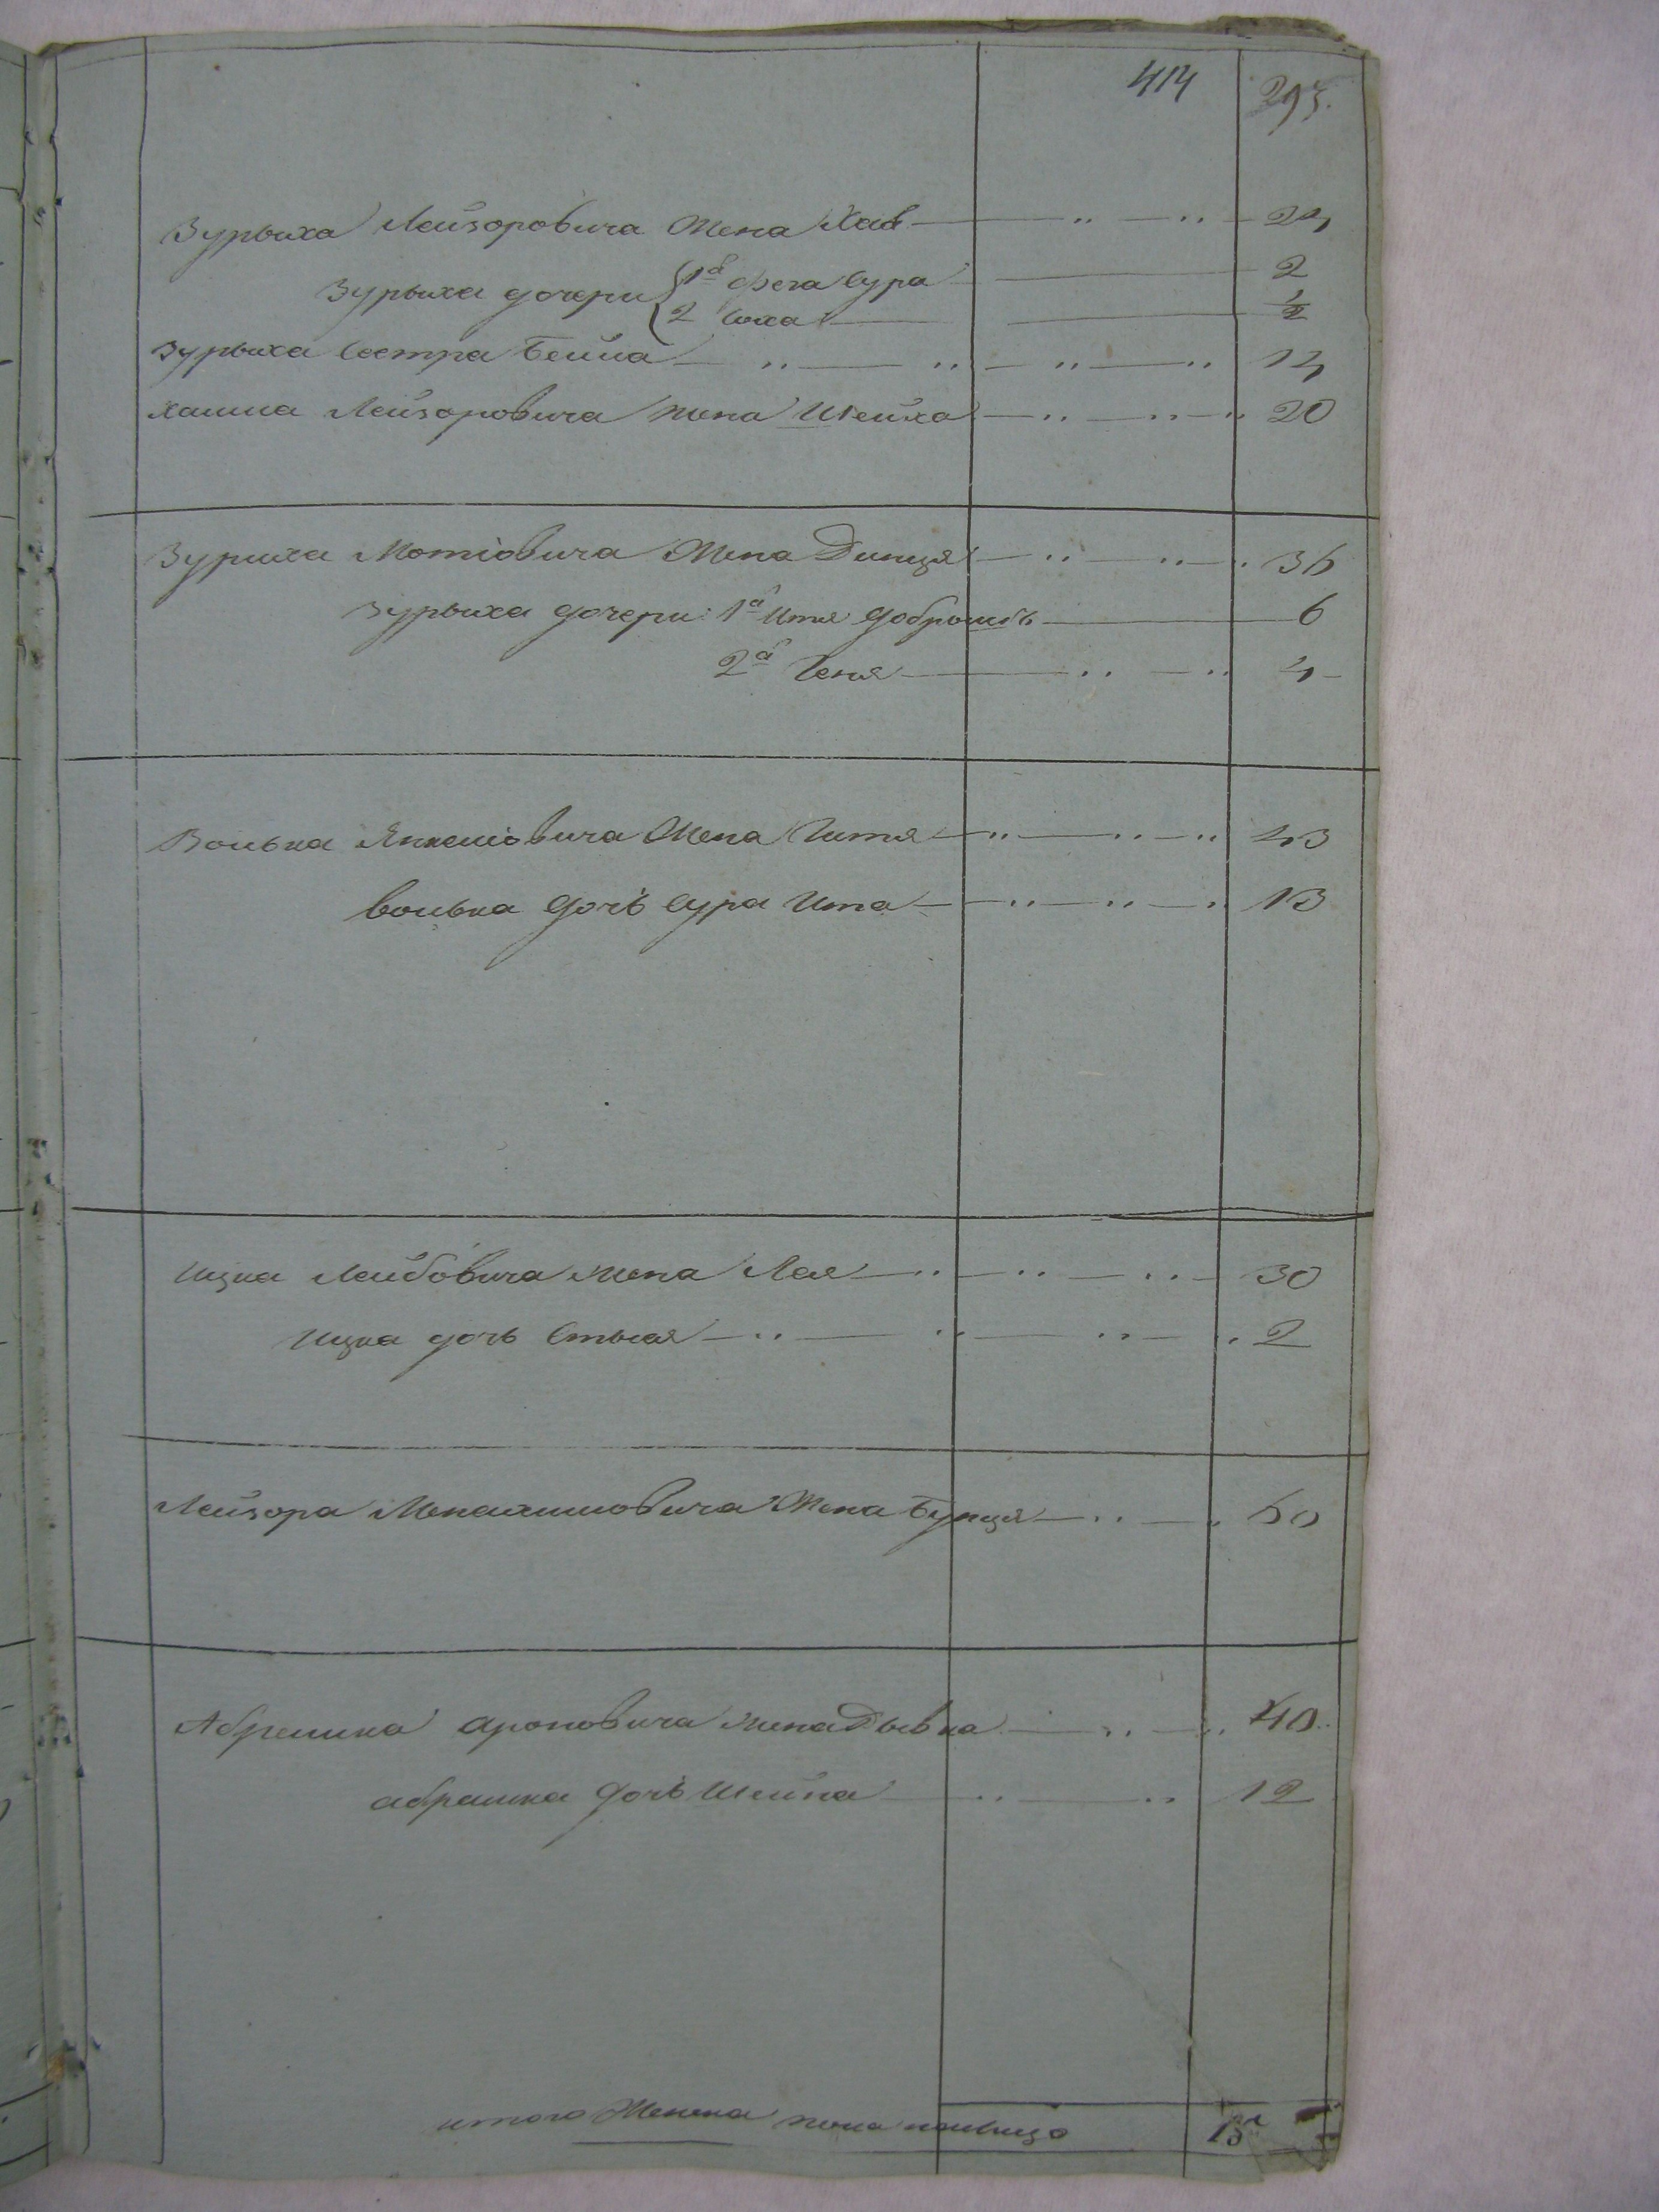 414 293.
Зурыха Лейзоровича Жена Хая 24
Зурыха дочери 1я Фега Сура 2
2 Соха 1/2
Зурыха Сестра Бейла 14
Хаима Лейзоровича жена Шейха 20
Зурыха Мотіовича Жена Динця 36
Зурыха дочери: 1я Итя Доброшь 6
2я Геня 4
Волька Янкеліовича Жена Гитя 43
Волька дочь Сура Ита 13
Ицка Лейбовича жена Лея 30
Ицка дочь Стыся 2
Лейзора Менахимовича Жена Бунця 50
Абрашка Ароновича жена Дывка 40
абрашка дочь Шейна 12
итого Женска пола налицо 15